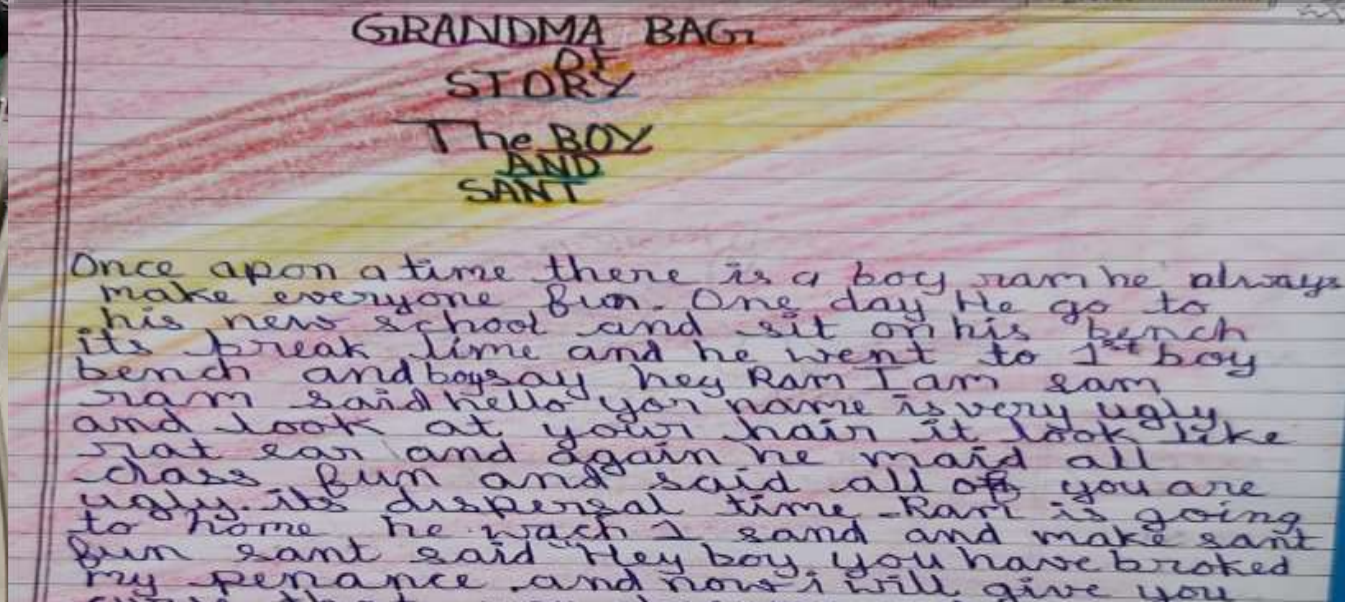 GRANDMA BAG
OF
STORY
The BOY
AND
SANT
Once apon a time there is a boy ram he always
make everyone fun. One day He go to
his new school and sit on his bench
its break time and he went to 1st boy
bench and boy say hey Ram I am sam
ram said hello yor name is very ugly
and look at your hair it look like
rat ear and again he maid all
class fun and said all of you are
ugly. its dispersal time Ram is going
to home he wach 1 sand and make sant
fun sant said "Hey boy you have broked
my penance and now i will give you